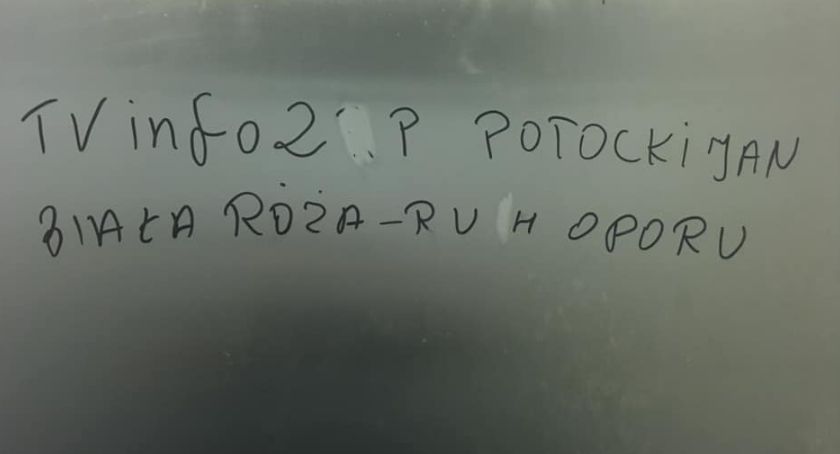 TV info2 P POTOCKI JAN
BIAŁA RÓŻA-RU H OPORU